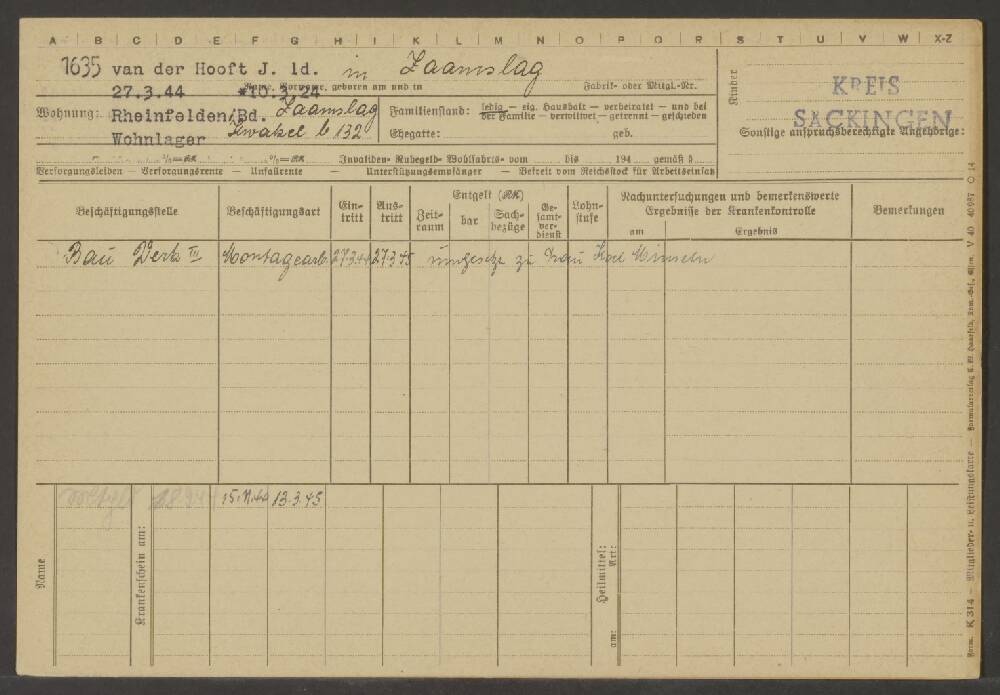 A B C D E F G H I K L M N O P Q R S T U V W X-Z
1635 van der Hooft J. ld. in Zaamslag
Name, Vorname, geboren am und in
Fabrik- oder Mitgl.-Nr.
27.3.44 *10.3.24
Wohnung: Rheinfelden/Bd. Zaamslag
Wohnlager Kwakel b 132
Familienstand: ledig — eig. Haushalt — verheiratet — und bei
der Familie — verwitwet — getrennt — geschieden
Ehegatte: geb.
Kinder
KREIS
SÄCKINGEN
Sonstige anspruchsberechtigte Angehörige:
Invaliden- Ruhegeld- Wohlfahrts- vom bis 194 gemäß §
Versorgungsleiden — Versorgungsrente — Unfallrente — Unterstützungsempfänger — Befreit vom Reichsstock für Arbeitseinsatz
Beschäftigungsstelle
Beschäftigungsart
Eintritt
Austritt
Entgelt (RK)
Zeitraum
bar
Sachbezüge
Gesamtverdienst
Lohnstufe
Nachuntersuchungen und bemerkenswerte
Ergebnisse der Krankenkontrolle
am
Ergebnis
Bemerkungen
Bau Werk III Montagearb. 27.3.44 27.3.45 umgesetzt zu Frau Minseln
15.11.44 13.3.45
Name
Krankenschein am:
Heilmittel:
Art:
am:
Form. K 314 — Mitglieder- u. Leistungskarte —